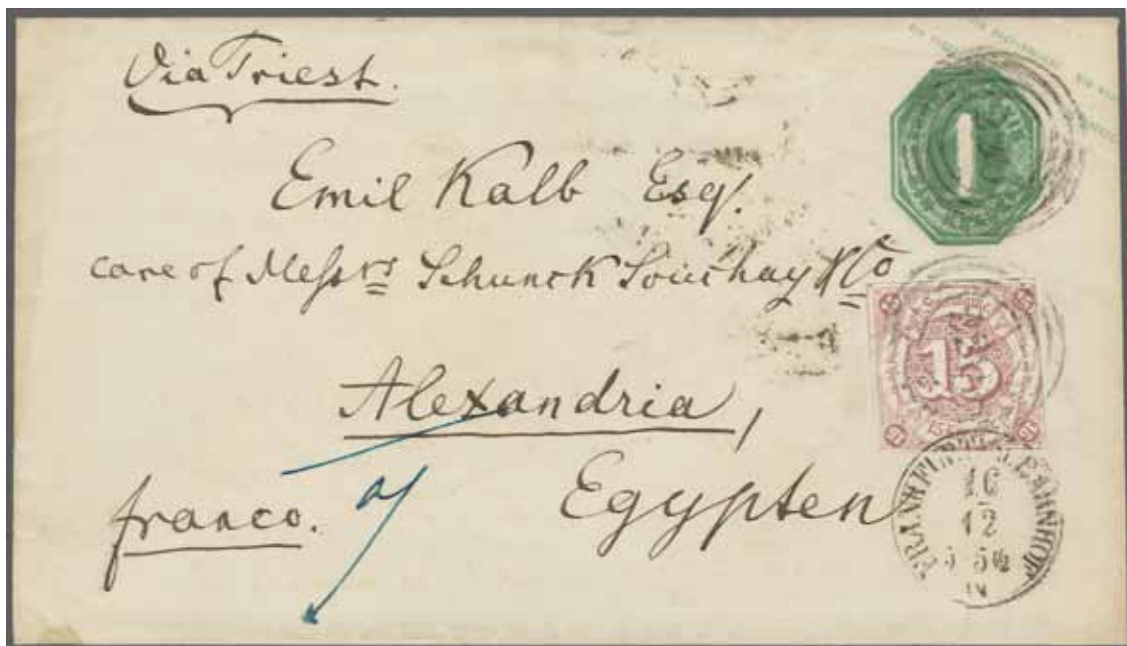 Via Triest.
1
Emil Kalb Esq.
care of Messrs Schunck Souchay & Co
15
Alexandria,
Egypten
franco.
FRANKFURT A. M. BAHNHOF
16
12
5-5½
N